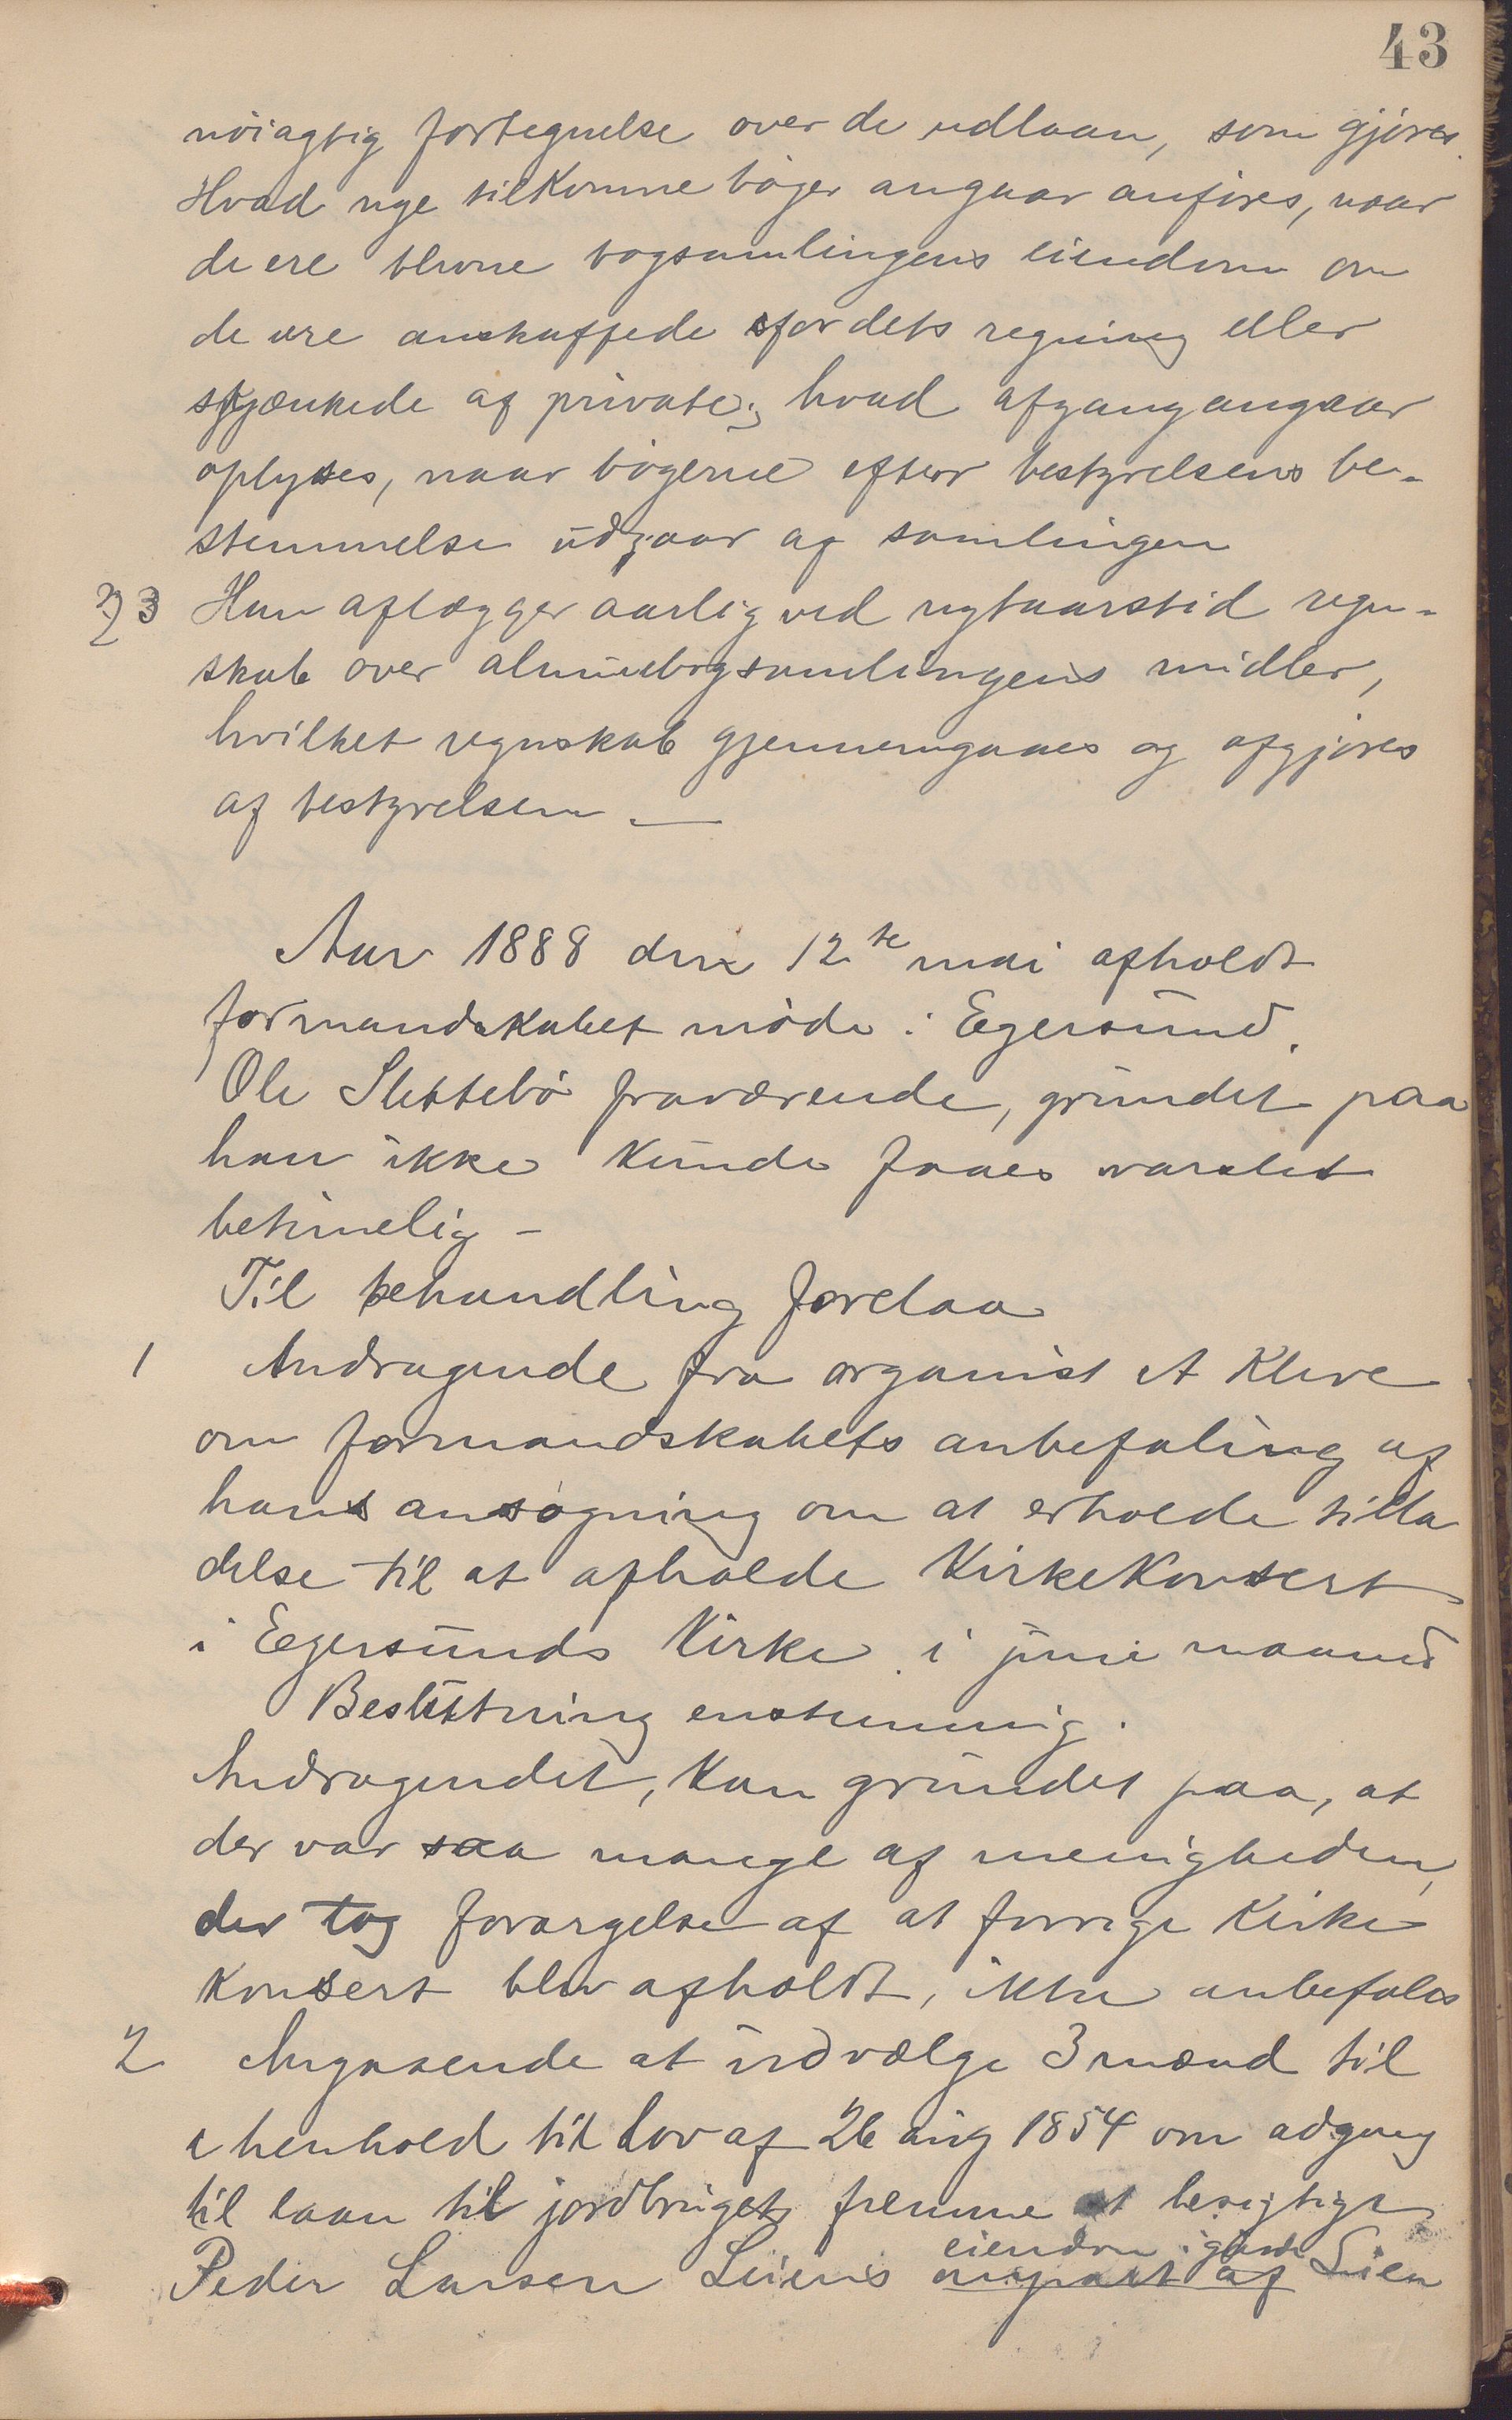 43
nöiagtig fortegnelse over de udlaan, som gjöres.
Hvad nye tilkomne böger angaar anföres, naar
de ere blevne bogsamlingens eiendom om
de ere anskaffede for dets regning eller
skjænkede af private; hvad afgang angaar
oplyses, naar bögerne efter bestyrelsens be-
stemmelse udgaar af samlingen
3 Han aflægger aarlig ved nytaarstid regn-
skab over almuebogsamlingens midler,
hvilket regnskab gjennemgaaes og afgjöres
af bestyrelsen —
Aar 1888 den 12te mai afholdt
formandskabet möde i Egersund.
Ole Slettebö fraværende, grundet paa
han ikke kunde faaes varslet
betimelig –
Til behandling forelaa
1 Andragende fra organist A Kleve
om formandskabets anbefaling af
hans ansögning om at erholde tilla
delse til at afholde Kirkekonsert
i Egersunds Kirke i juni maaned
Beslutning enstemmig.
Andragendet, kan grundet paa, at
der var saa mange af menigheden,
der tog forargelse af at forrige Kirke
konsert blev afholdt, ikke anbefales
2 Angaaende at udvælge 3 mænd til
i henhold til lov af 26 aug 1854 om adgang
til laan til jordbrugets fremme at besigtige
eiendom i gaard
Peder Larsen Leiens anpart af Lien